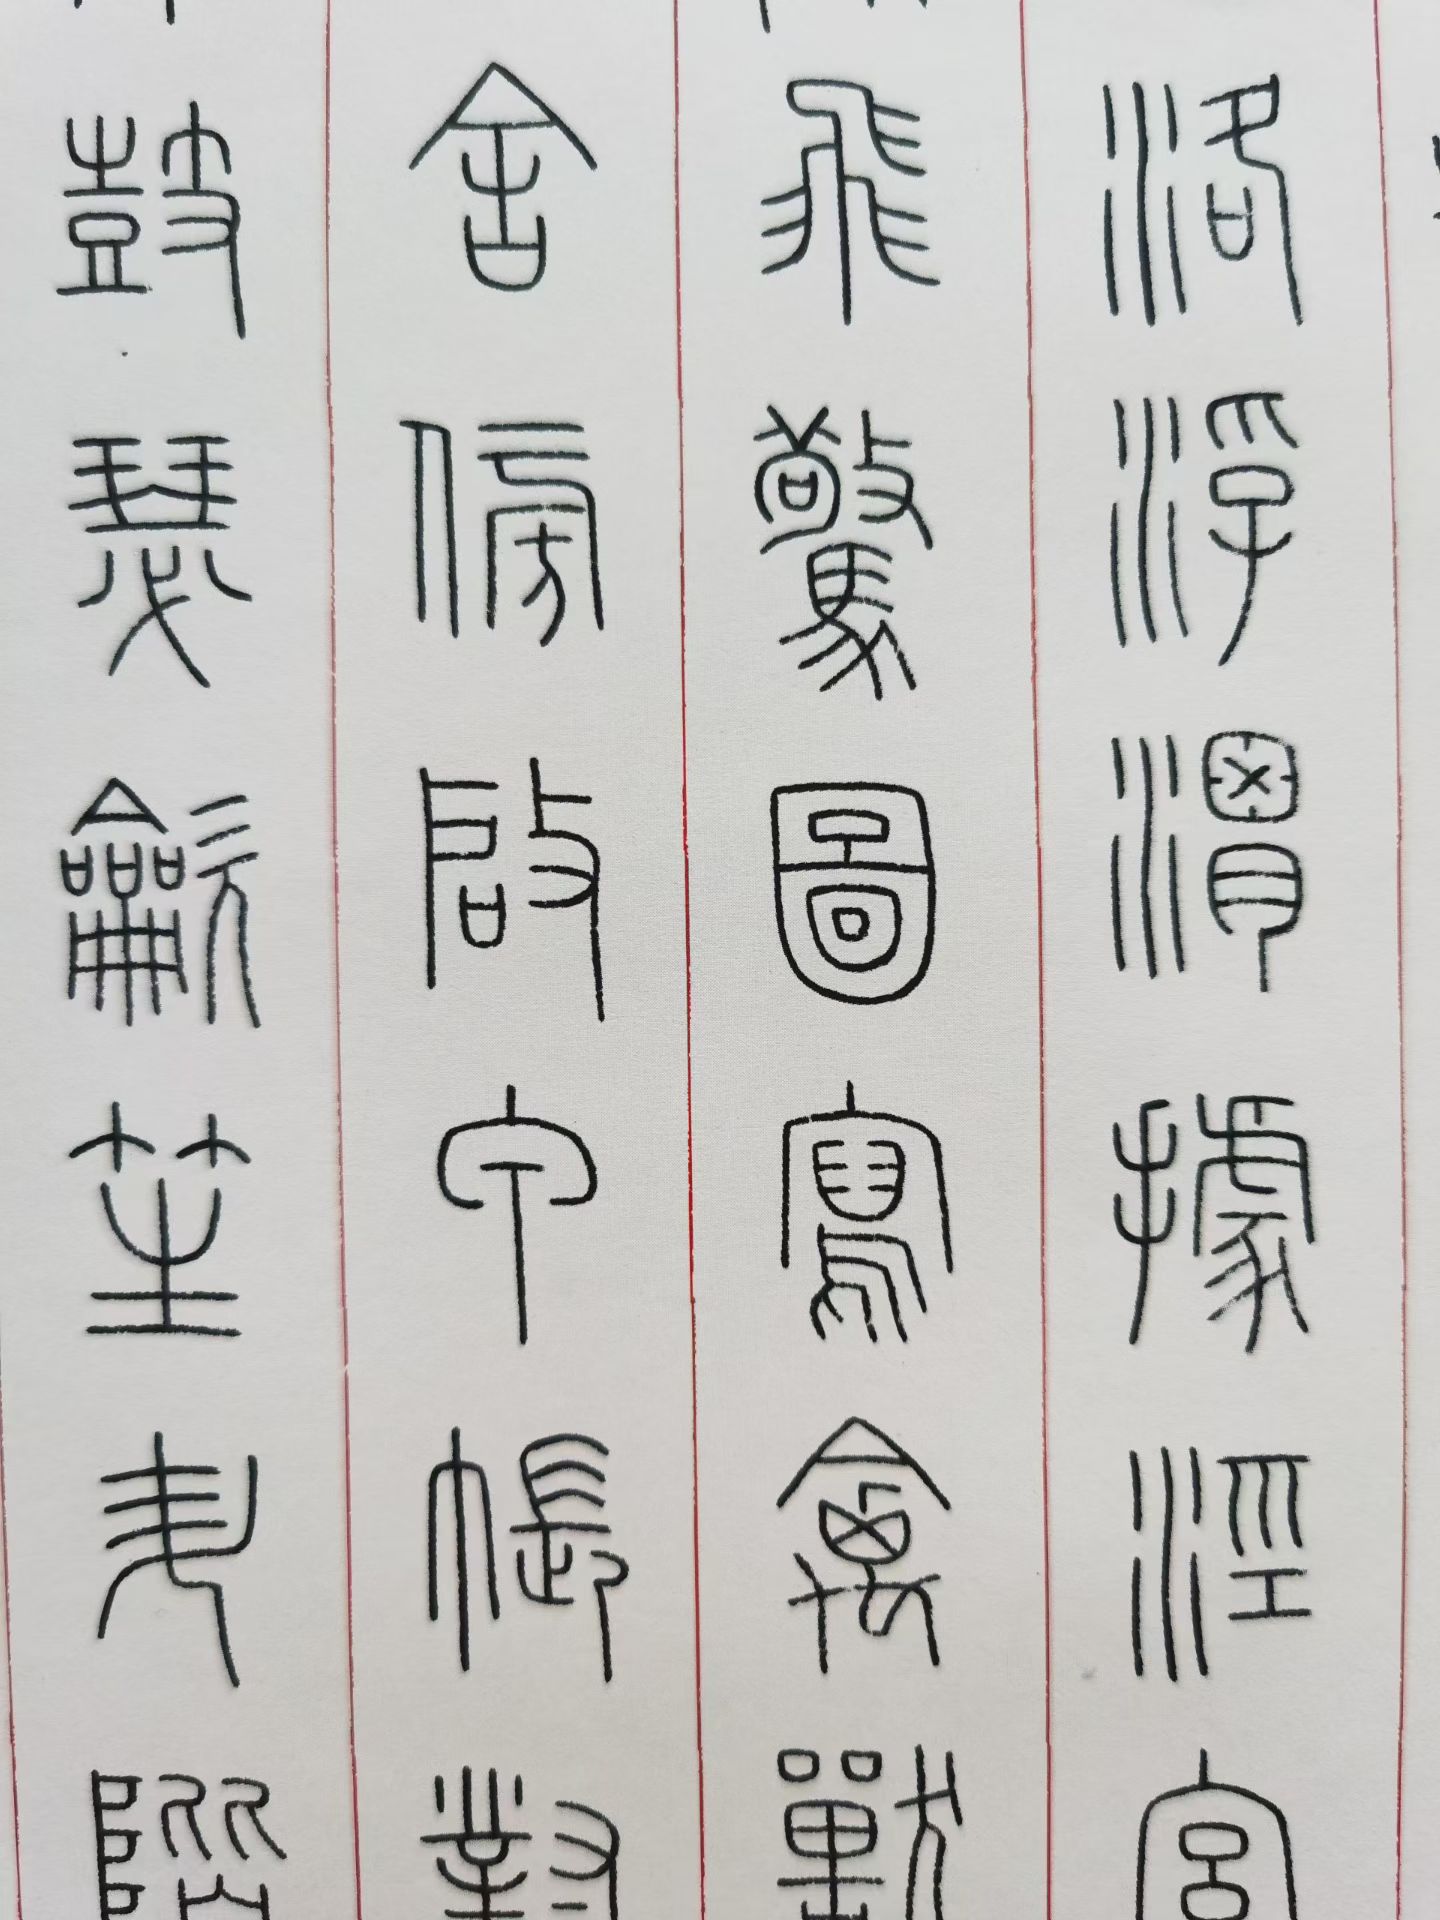 洛浮渭據涇宮
飛驚圖寫禽獸
舍傍啟甲帳對
鼓瑟龡笙升階